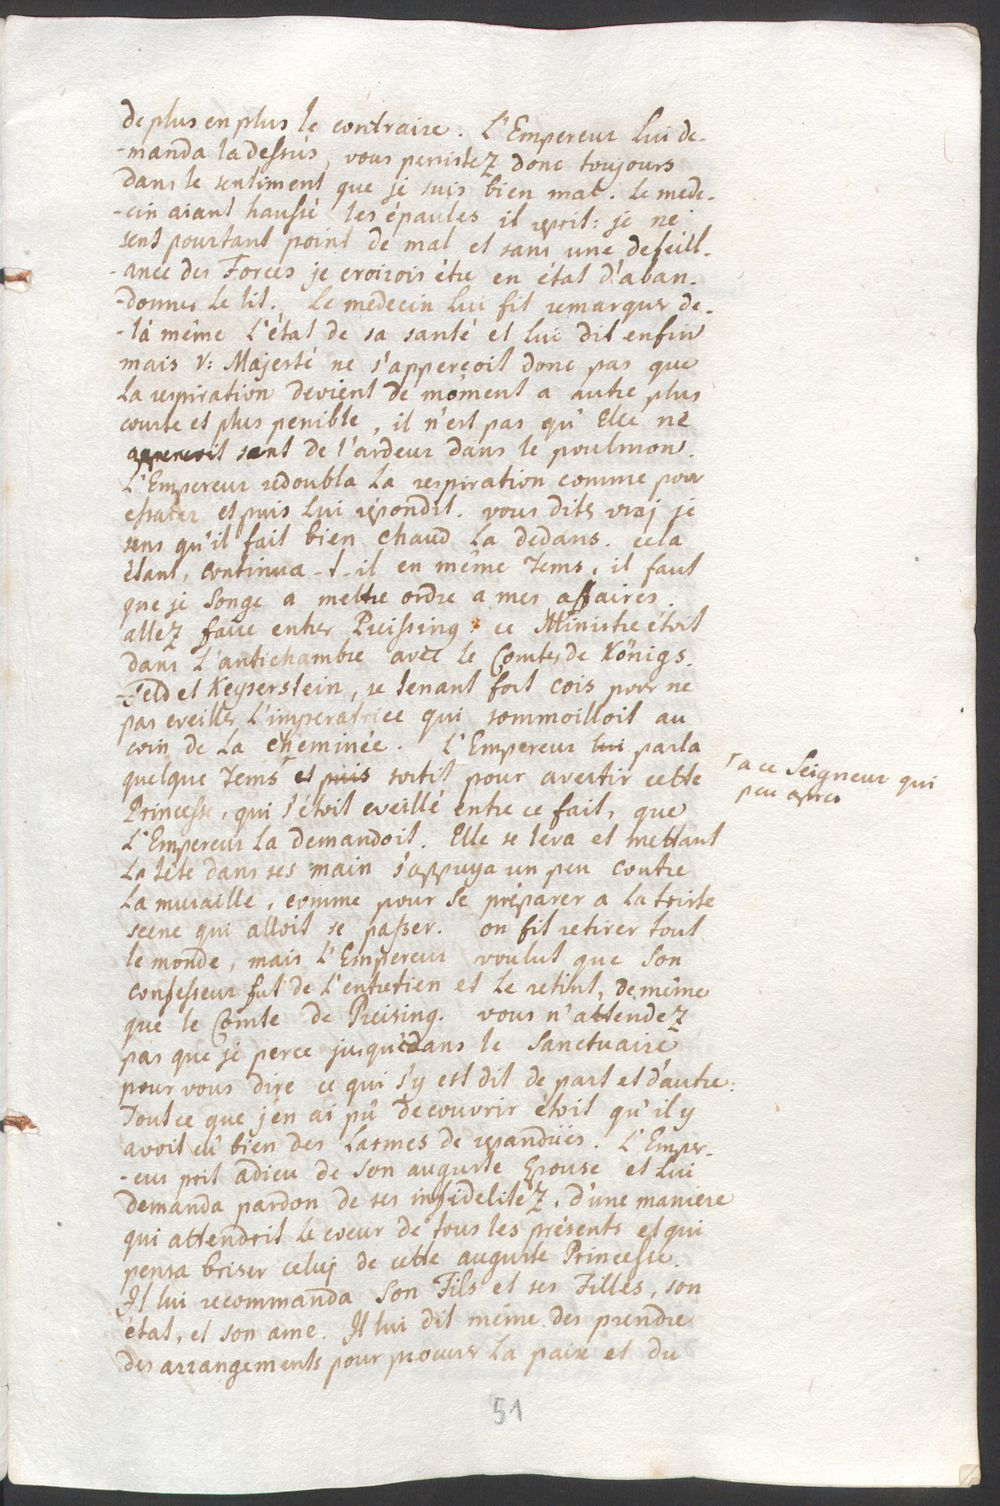 de plus en plus le contraire. L'Empereur lui de-
-manda la dessus, vous persistez donc toujours
dans le sentiment que je suis bien mal. Le mede-
-cin aiant haussé les épaules il reprit: je ne
sent pourtant point de mal et sans une defeill-
-ance des Forces je croirois étre en état d'aban-
-donner le lit. Le medecin lui fit remarquer de-
-là même l'état de sa santé et lui dit enfin
mais V: Majesté ne s'apperçoit donc pas que
la respiration devient de moment a autre plus
courte et plus penible, il n'est pas qu'Elle ne
sent de l'ardeur dans le poulmon.
L'Empereur redoubla la respiration comme pour
essaier et puis lui répondit. vous dites vraj je
sens qu'il fait bien chaud la dedans. cela
étant, continua-t-il en même Tems, il faut
que je songe a mettre ordre a mes affaires.
allez faire entrer Preissing. ce Ministre étoit
dans l'antichambre avec le Comte de Königs-
-Feld et Keyserstein, se tenant fort cois pour ne
pas eveiller l'imperatrice qui sommoilloit au
coin de la cheminée. L'Empereur lui parla
quelque Tems et puis sortit pour avertir cette
┌ a ce Seigneur qui
peu apres
Princesse, qui s'étoit eveillé entre ce fait, que
L'Empereur la demandoit. Elle se leva et mettant
la tête dans ses main s'appuya un peu contre
la muraille, comme pour se préparer a la triste
scene qui alloit se passer. on fit retirer tout
le monde, mais l'Empereur voulut que son
confesseur fut de l'entretien et le retint, de même
que le Comte de Preising. vous n'attendez
pas que je perce jusque dans le Sanctuaire
pour vous dire ce qui s'y est dit de part et d'autre:
Tout ce que j'en ai pû decouvrir étoit qu'il y
avoit eû bien des larmes de repandües. L'Emper-
-eur prit adieu de son auguste Epouse et lui
demanda pardon de ses infidelitéz, d'une maniere
qui attendrit le coeur de tous les présents et qui
pensa briser celuj de cette auguste Princesse.
Il lui recommanda son Fils et ses Filles, son
état, et son ame. Il lui dit même des prendre
des arrangements pour procurer la paix et du
51